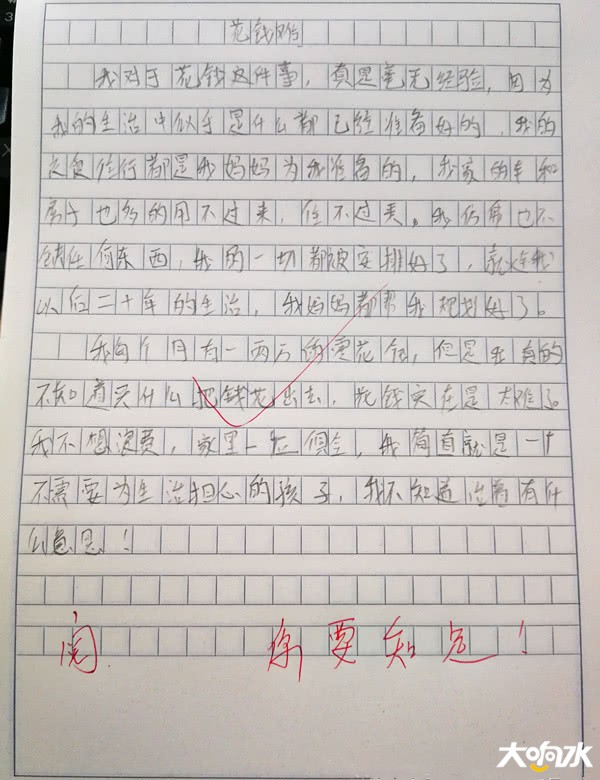 花钱难
我对于花钱这件事，真是毫无经验，因为
我的生活中似乎是什么都已经准备好的，我的
衣食住行都是我妈妈为我准备的，我家的车和
房子也多的用不过来，住不过来。我仿佛也不
缺任何东西，我的一切都被安排好了，就连我
以后二十年的生活，我妈妈都帮我规划好了。
我每个月有一两万的零花钱，但是我真的
不知道买什么把钱花出去，花钱实在是太难了
我不想浪费，家里一应俱全，我简直就是一个
不需要为生活担心的孩子，我不知道活着有什
么意思！
阅 你要知足！
大响水